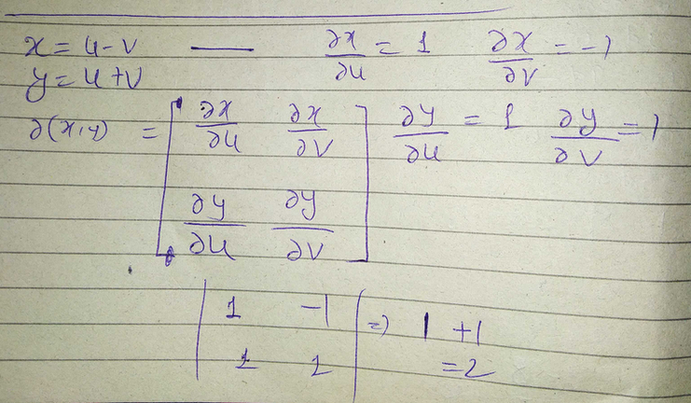 x = u-v —— ∂x/∂u = 1 ∂x/∂v = -1
y = u+v
∂(x,y) = [ ∂x/∂u ∂x/∂v ] ∂y/∂u = 1 ∂y/∂v = 1
∂y/∂u ∂y/∂v
| 1 -1 | => 1 +1
1 1 =2